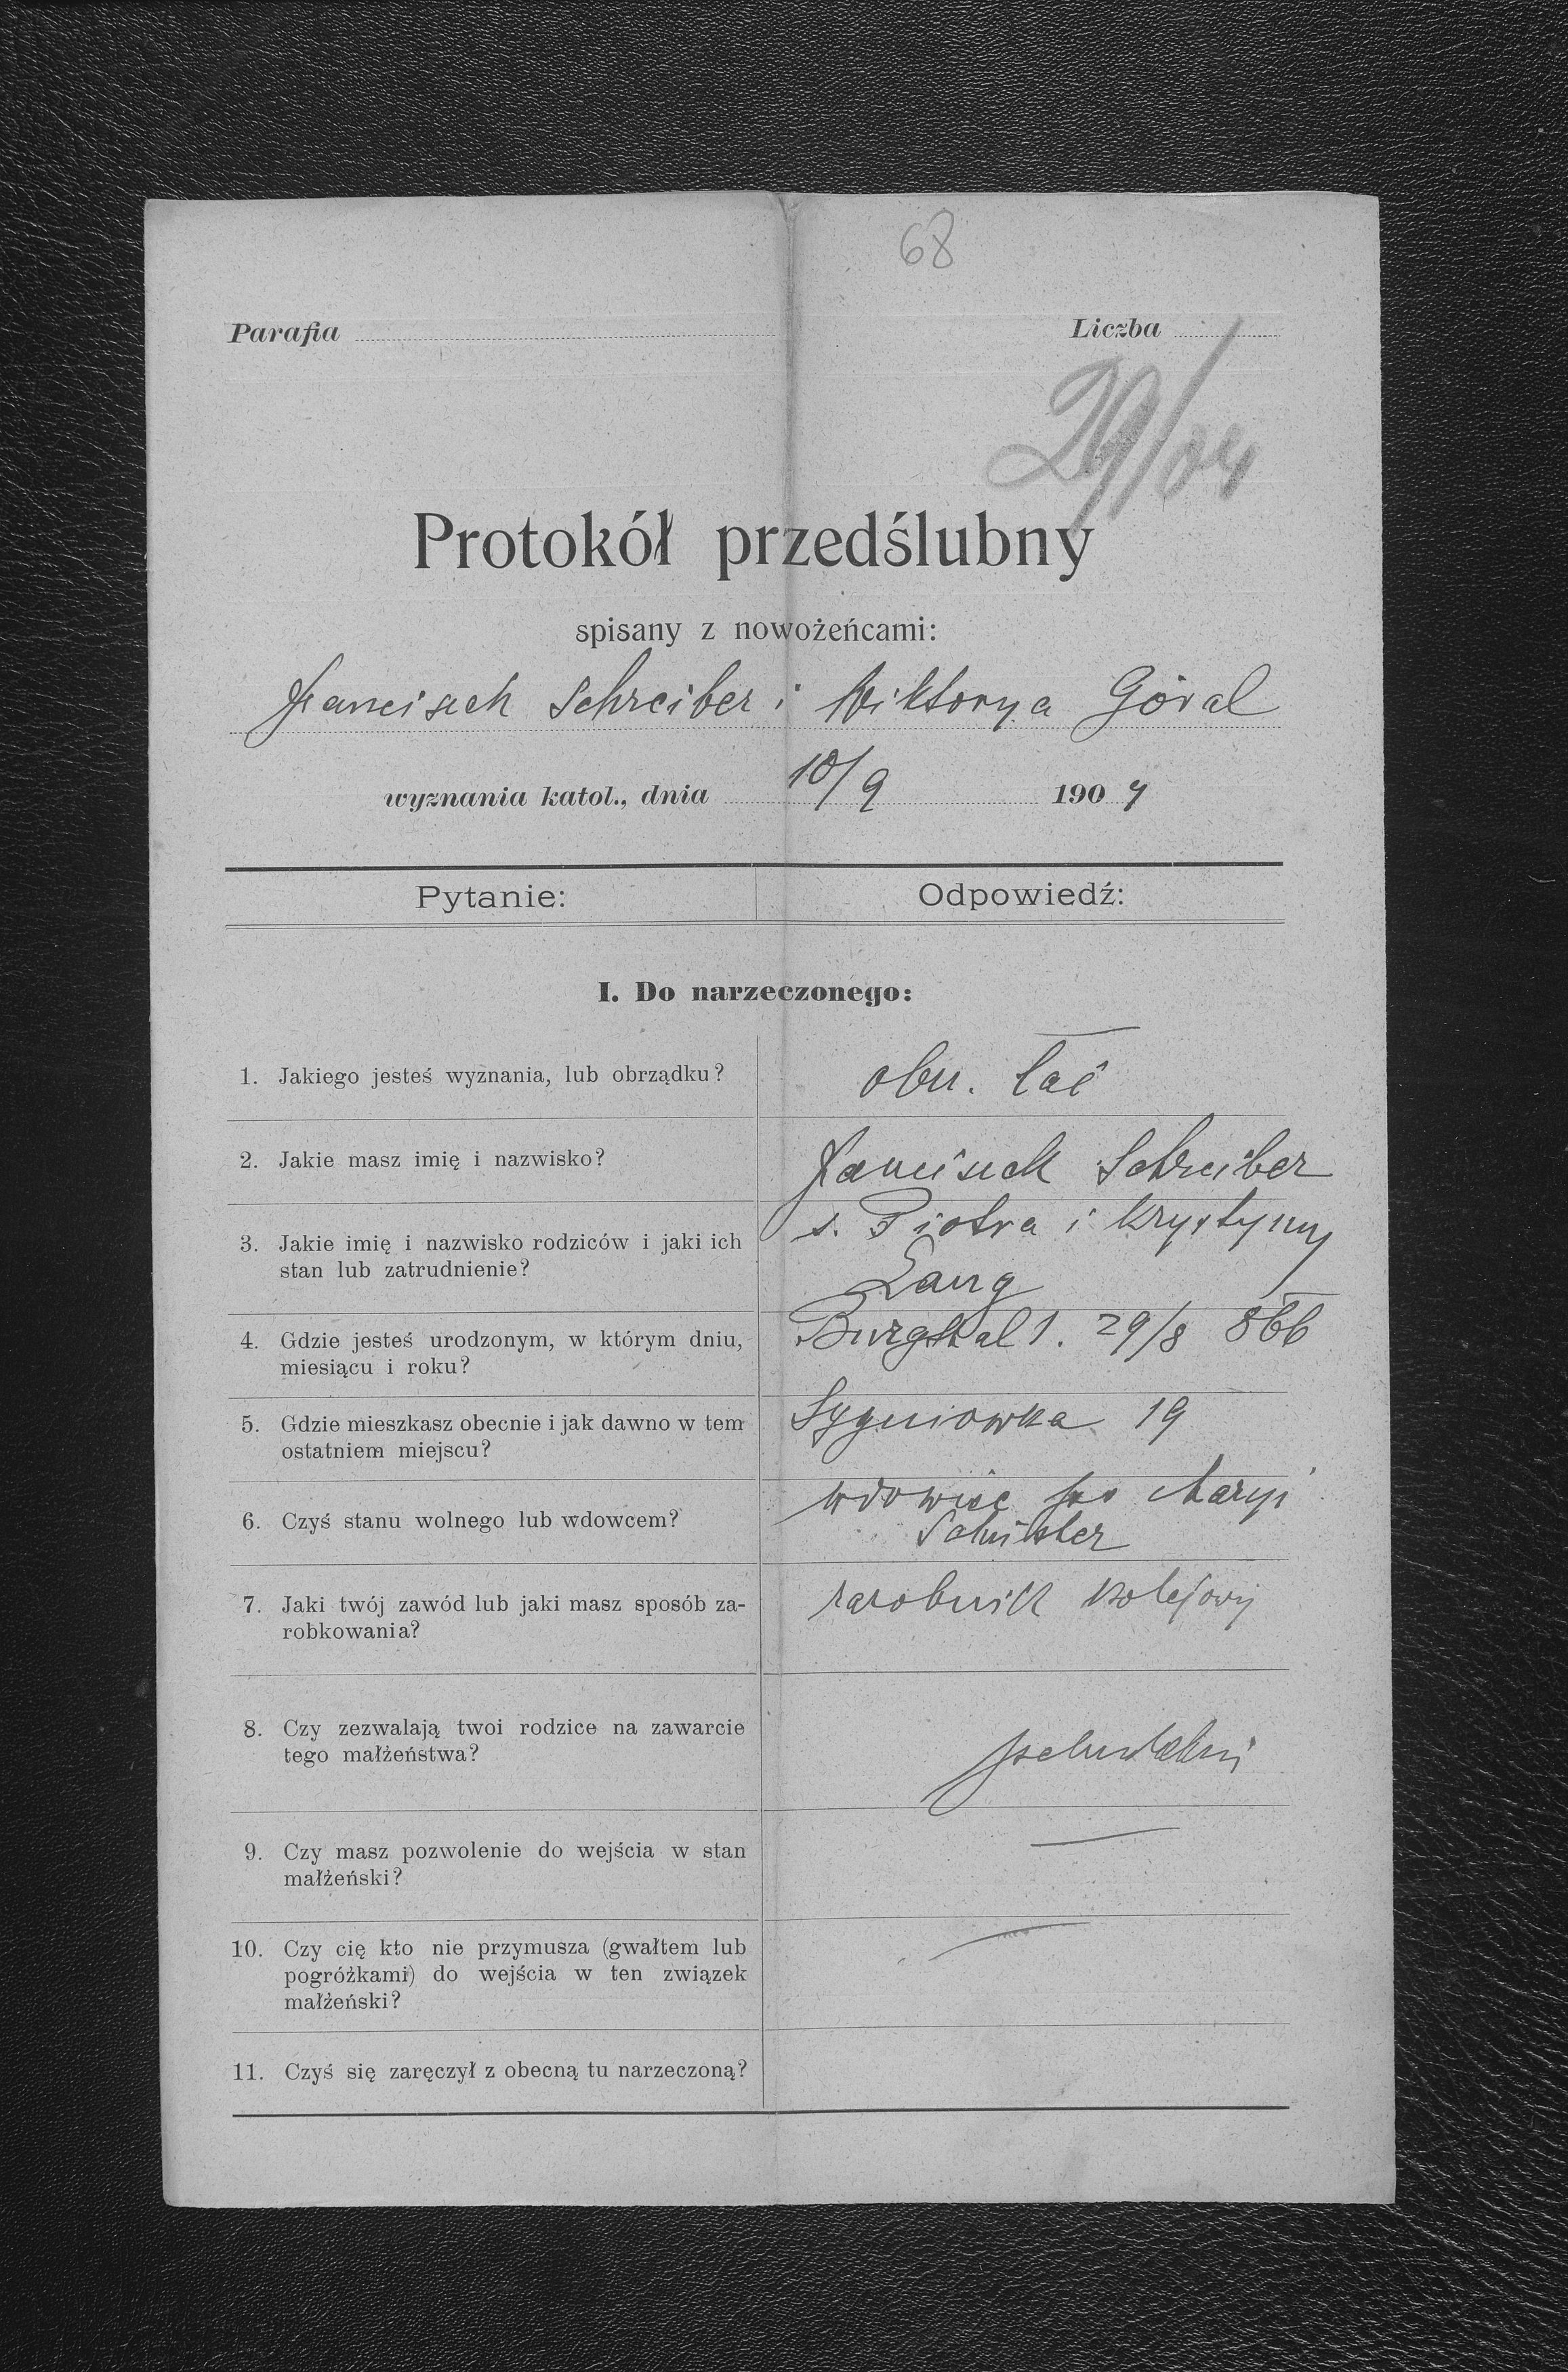 68
Parafia
Liczba
29/04
Protokół przedślubny
spisany z nowożeńcami:
Franciszek Schreiber i Wiktorya Góral
wyznania katol., dnia 10/9 1904
Pytanie:
Odpowiedź:
I. Do narzeczonego:
1. Jakiego jesteś wyznania, lub obrządku?
obrz. łać
2. Jakie masz imię i nazwisko?
Franciszek Schreiber
3. Jakie imię i nazwisko rodziców i jaki ich
stan lub zatrudnienie?
s. Piotra i Krystyny
Lang
4. Gdzie jesteś urodzonym, w którym dniu,
miesiącu i roku?
Burgthal 1. 29/8 866
5. Gdzie mieszkasz obecnie i jak dawno w tem
ostatniem miejscu?
Sygniowka 19
6. Czyś stanu wolnego lub wdowcem?
wdowiec po Maryi
7. Jaki twój zawód lub jaki masz sposób za-
robkowania?
zarobnik kolejowy
8. Czy zezwalają twoi rodzice na zawarcie
tego małżeństwa?
pełnoletni
9. Czy masz pozwolenie do wejścia w stan
małżeński?
10. Czy cię kto nie przymusza (gwałtem lub
pogróżkami) do wejścia w ten związek
małżeński?
11. Czyś się zaręczył z obecną tu narzeczoną?